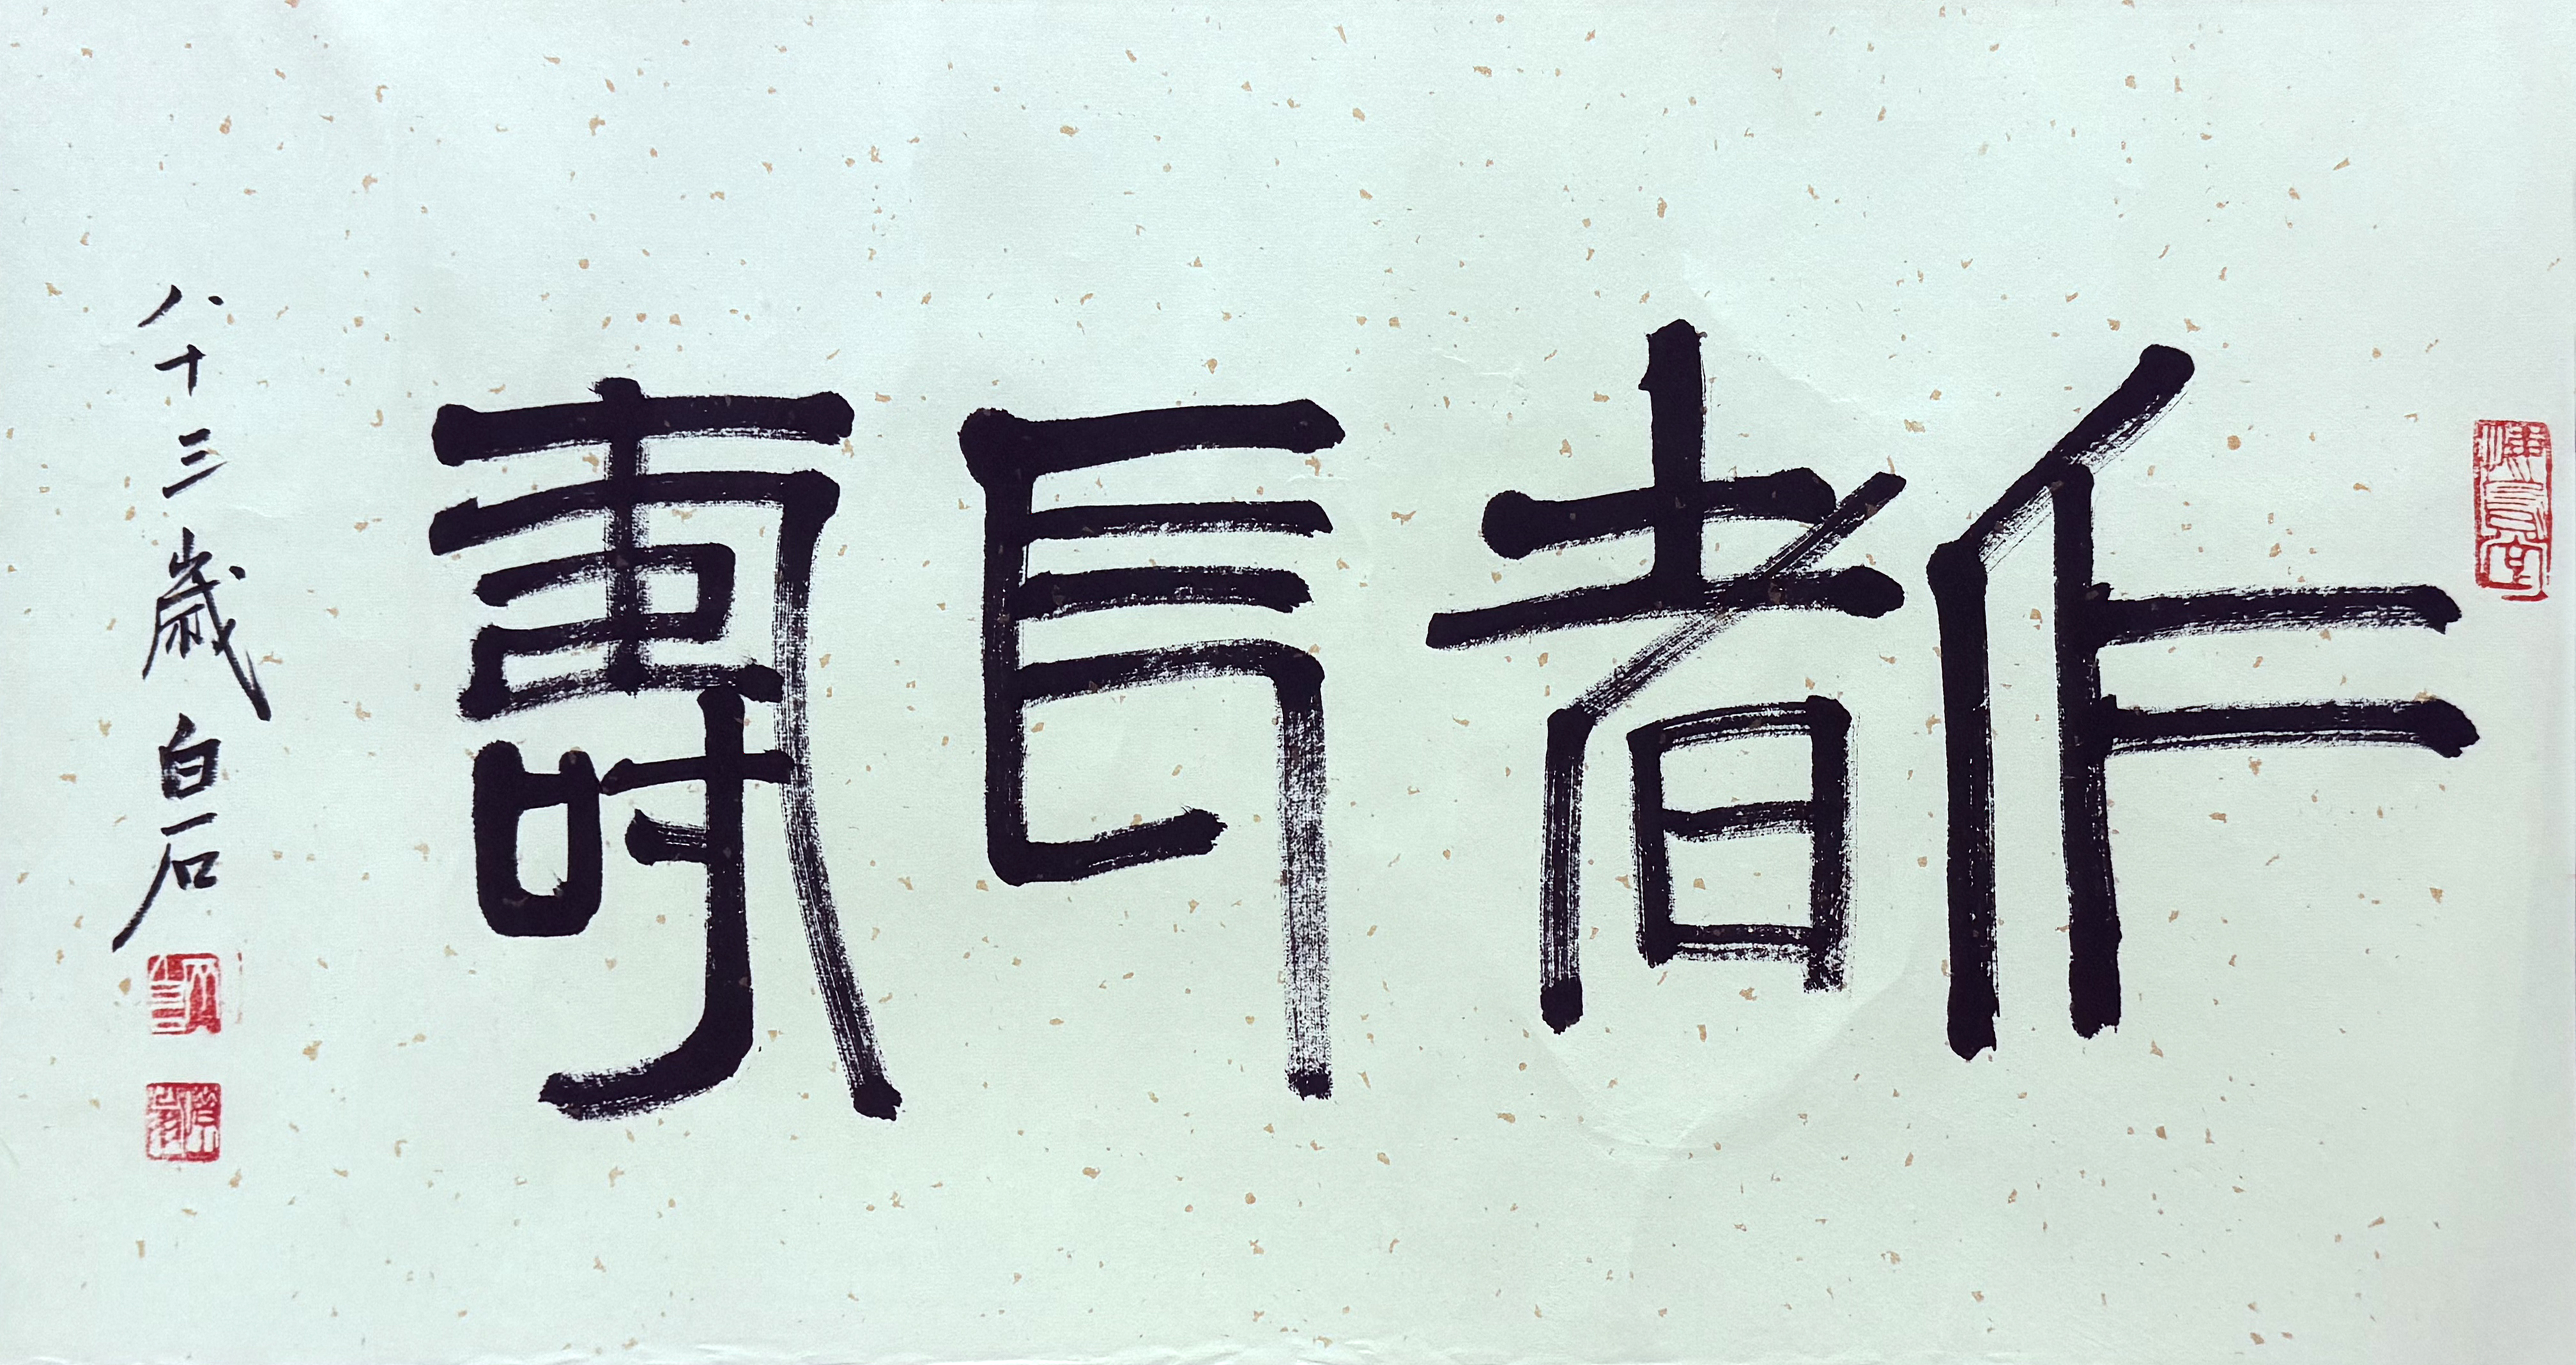 作者長壽
八十三歲白石